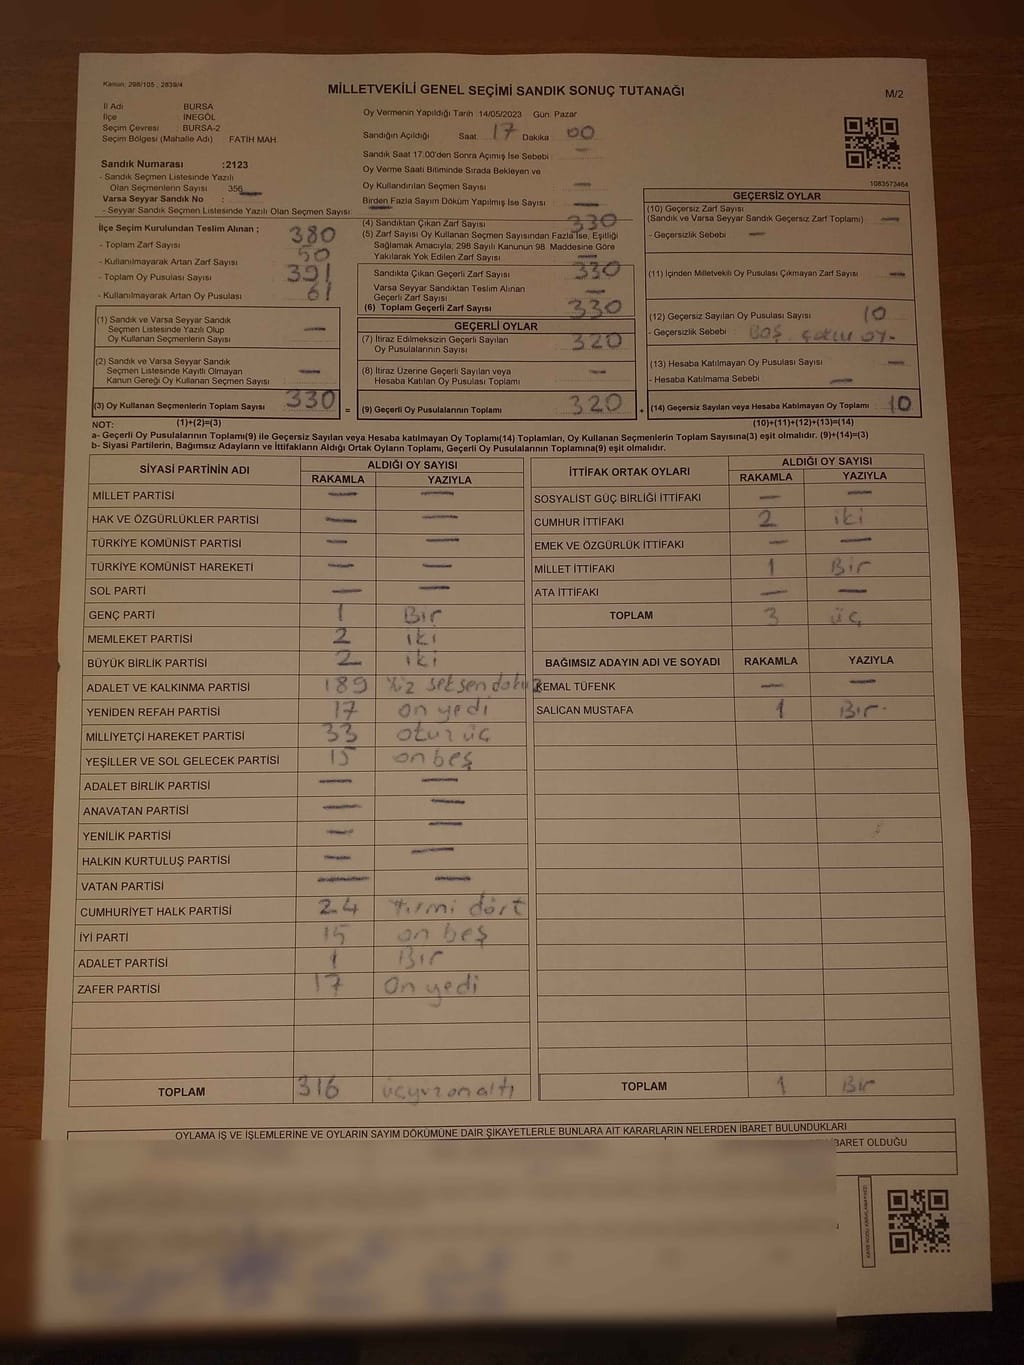 Kanun: 298/105 , 2839/4
MİLLETVEKİLİ GENEL SEÇİMİ SANDIK SONUÇ TUTANAĞI
M/2
İl Adı BURSA
İlçe İNEGÖL
Seçim Çevresi BURSA-2
Seçim Bölgesi (Mahalle Adı) FATİH MAH
Oy Vermenin Yapıldığı Tarih 14/05/2023 Gün: Pazar
Sandığın Açıldığı Saat 17 Dakika 00
Sandık Saat 17:00'den Sonra Açımış İse Sebebi : —
Oy Verme Saati Bitiminde Sırada Bekleyen ve
Oy Kullandırılan Seçmen Sayısı —
Birden Fazla Sayım Döküm Yapılmış İse Sayısı —
Sandık Numarası :2123
- Sandık Seçmen Listesinde Yazılı
Olan Seçmenlerin Sayısı 356
Varsa Seyyar Sandık No : —
- Seyyar Sandık Seçmen Listesinde Yazılı Olan Seçmen Sayısı:
İlçe Seçim Kurulundan Teslim Alınan ;
- Toplam Zarf Sayısı 380
- Kullanılmayarak Artan Zarf Sayısı 50
- Toplam Oy Pusulası Sayısı 391
- Kullanılmayarak Artan Oy Pusulası 61
(1) Sandık ve Varsa Seyyar Sandık
Seçmen Listesinde Yazılı Olup
Oy Kullanan Seçmenlerin Sayısı —
(2) Sandık ve Varsa Seyyar Sandık
Seçmen Listesinde Kayıtlı Olmayan
Kanun Gereği Oy Kullanan Seçmen Sayısı —
(3) Oy Kullanan Seçmenlerin Toplam Sayısı 330 =
(1)+(2)=(3)
(4) Sandıktan Çıkan Zarf Sayısı 330
(5) Zarf Sayısı Oy Kullanan Seçmen Sayısından Fazla İse, Eşitliği
Sağlamak Amacıyla; 298 Sayılı Kanunun 98. Maddesine Göre
Yakılarak Yok Edilen Zarf Sayısı —
Sandıkta Çıkan Geçerli Zarf Sayısı 330
Varsa Seyyar Sandıktan Teslim Alınan
Geçerli Zarf Sayısı —
(6) Toplam Geçerli Zarf Sayısı 330
GEÇERLİ OYLAR
(7) İtiraz Edilmeksizin Geçerli Sayılan
Oy Pusulalarının Sayısı 320
(8) İtiraz Üzerine Geçerli Sayılan veya
Hesaba Katılan Oy Pusulası Toplamı —
(9) Geçerli Oy Pusulalarının Toplamı 320 +
1083573464
GEÇERSİZ OYLAR
(10) Geçersiz Zarf Sayısı
(Sandık ve Varsa Seyyar Sandık Geçersiz Zarf Toplamı) —
- Geçersizlik Sebebi —
(11) İçinden Milletvekili Oy Pusulası Çıkmayan Zarf Sayısı —
(12) Geçersiz Sayılan Oy Pusulası Sayısı 10
- Geçersizlik Sebebi BOŞ. çoklu oy-
(13) Hesaba Katılmayan Oy Pusulası Sayısı —
- Hesaba Katılmama Sebebi —
(14) Geçersiz Sayılan veya Hesaba Katılmayan Oy Toplamı 10
(10)+(11)+(12)+(13)=(14)
NOT:
a- Geçerli Oy Pusulalarının Toplamı(9) ile Geçersiz Sayılan veya Hesaba katılmayan Oy Toplamı(14) Toplamları, Oy Kullanan Seçmenlerin Toplam Sayısına(3) eşit olmalıdır. (9)+(14)=(3)
b- Siyasi Partilerin, Bağımsız Adayların ve İttifakların Aldığı Ortak Oyların Toplamı, Geçerli Oy Pusulalarının Toplamına(9) eşit olmalıdır.
SİYASİ PARTİNİN ADI ALDIĞI OY SAYISI
RAKAMLA YAZIYLA
MİLLET PARTİSİ — —
HAK VE ÖZGÜRLÜKLER PARTİSİ — —
TÜRKİYE KOMÜNİST PARTİSİ — —
TÜRKİYE KOMÜNİST HAREKETİ — —
SOL PARTİ — —
GENÇ PARTİ 1 Bir
MEMLEKET PARTİSİ 2 iki
BÜYÜK BİRLİK PARTİSİ 2 iki
ADALET VE KALKINMA PARTİSİ 189 Yüz seksen dokuz
YENİDEN REFAH PARTİSİ 17 on yedi
MİLLİYETÇİ HAREKET PARTİSİ 33 otuz üç
YEŞİLLER VE SOL GELECEK PARTİSİ 15 on beş
ADALET BİRLİK PARTİSİ — —
ANAVATAN PARTİSİ — —
YENİLİK PARTİSİ — —
HALKIN KURTULUŞ PARTİSİ — —
VATAN PARTİSİ — —
CUMHURİYET HALK PARTİSİ 24 Yirmi dört
İYİ PARTİ 15 on beş
ADALET PARTİSİ 1 Bir
ZAFER PARTİSİ 17 On yedi
TOPLAM 316 üçyüzonaltı
İTTİFAK ORTAK OYLARI ALDIĞI OY SAYISI
RAKAMLA YAZIYLA
SOSYALİST GÜÇ BİRLİĞİ İTTİFAKI — —
CUMHUR İTTİFAKI 2 iki
EMEK VE ÖZGÜRLÜK İTTİFAKI — —
MİLLET İTTİFAKI 1 Bir
ATA İTTİFAKI — —
TOPLAM 3 üç
BAĞIMSIZ ADAYIN ADI VE SOYADI RAKAMLA YAZIYLA
KEMAL TÜFENK — —
SALİCAN MUSTAFA 1 Bir.
TOPLAM 1 Bir
OYLAMA İŞ VE İŞLEMLERİNE VE OYLARIN SAYIM DÖKÜMÜNE DAİR ŞİKAYETLERLE BUNLARA AİT KARARLARIN NELERDEN İBARET BULUNDUKLARI
İBARET OLDUĞU